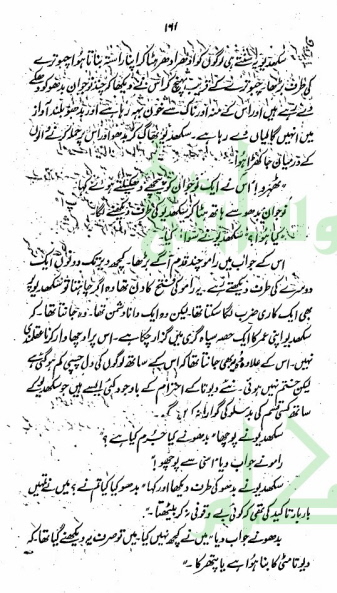 ۱۶۱
سکھدیو یہ سنتے ہی لوگوں کو ادھر ادھر ہٹا کر اپنا راستہ بناتا ہوا چبوترے
کی طرف بڑھا۔ چبوترے کے قریب پہنچ کر اس نے دیکھا کہ چند نوجوان بدھو کو دھکے
دے رہے ہیں اور اس کے منہ اور ناک سے خون بہہ رہا ہے اور بدھو بلند آواز
میں انہیں گالیاں دے رہا ہے۔ سکھدیو بھاگ کر بدھو اور اس پر حملہ کرنے والوں
کے درمیان جا کھڑا ہوا۔
"ٹھہرو!" اس نے ایک نوجوان کو پیچھے دھکیلتے ہوئے کہا۔
نوجوان بدھو سے ہاتھ ہٹا کر سکھدیو کی طرف دیکھنے لگا۔
"کیا ہوا؟" سکھدیو نے
اس کے جواب میں رامو چند قدم آگے بڑھا۔ کچھ دیر تک دونوں ایک
دوسرے کی طرف دیکھتے رہے۔ یہ رامو کی فتح کا دن تھا وہ اگر چاہتا تو سکھدیو پر
بھی ایک کاری ضرب لگا سکتا تھا۔ لیکن وہ ایک دانا دشمن تھا۔ وہ جانتا تھا۔ کہ
سکھدیو اپنی عمر کا ایک حصہ سپاہ گری میں گزار چکا ہے۔ اس پر اوچھا وار کرنا عقلمندی
نہیں۔ اس کے علاوہ وہ یہ بھی جانتا تھا کہ اس کے ساتھ لوگوں کی دل چسپی کم ہو گئی ہے
لیکن ختم نہیں ہوئی۔ نئے دیوتا کے احترام کے باوجود کئی ایسے ہیں جو سکھدیو کے
ساتھ کسی قسم کی بدسلوکی گوارا نہ کریں گے۔
سکھدیو نے پوچھا "بدھو نے کیا جرم کیا ہے؟"
رامو نے جواب دیا "اسی سے پوچھ لو!"
سکھدیو نے بدھو کی طرف دیکھا اور کہا "بدھو کیا کیا تم نے؟ میں نے تمہیں
بار بار تاکید کی تھی کہ کوئی بے وقوفی نہ کر بیٹھنا۔"
بدھو نے جواب دیا "میں نے کچھ نہیں کیا۔ میں تو صرف یہ دیکھنے گیا تھا کہ
دیوتا مٹی کا بنا ہوا ہے یا پتھر کا۔"